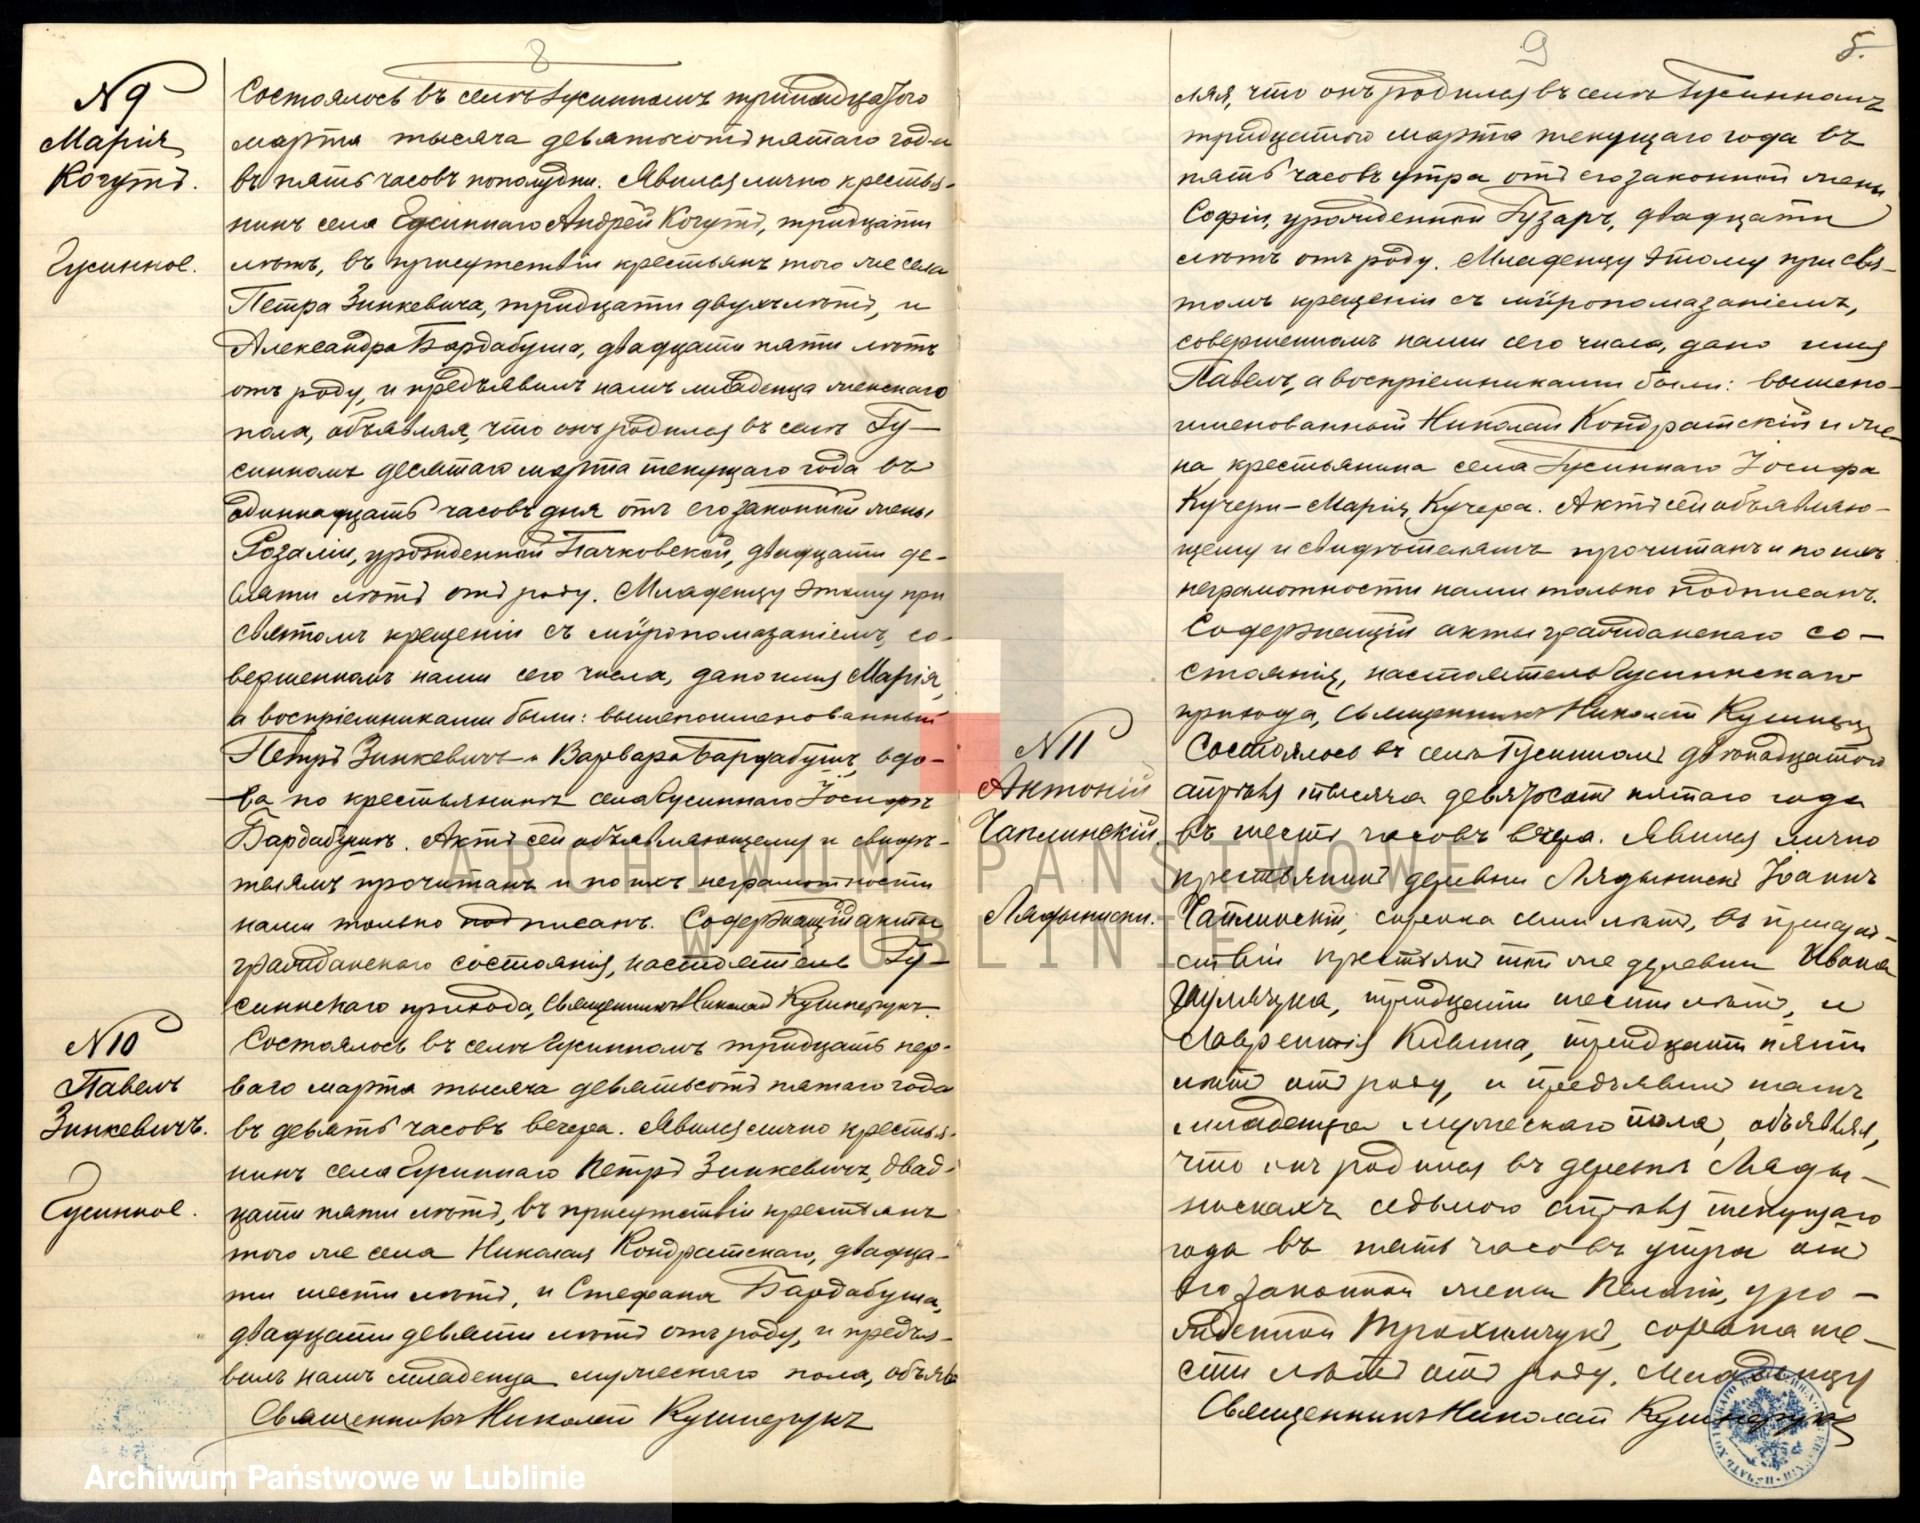 8
№ 9
Марія
Когутъ.
Гусинное.
Состоялось въ селѣ Гусинномъ тринадцатого
марта тысяча девятьсотъ пятаго года
въ пять часовъ пополудни. Явился лично крестья-
нинъ села Гусиннаго Андрей Когутъ, тридцати
лѣтъ, въ присутствіи крестьянъ того же села
Петра Зинкевича, тридцати двухъ лѣтъ, и
Александра Бардабуша, двадцати пяти лѣтъ
отъ роду, и предъявилъ намъ младенца женскаго
пола, объявляя, что онъ родился въ селѣ Гу-
синномъ десятаго марта текущаго года въ
одиннадцать часовъ дня отъ его законной жены
Розаліи, урожденной Пачковской, двадцати де-
вяти лѣтъ отъ роду. Младенцу этому при
святомъ крещеніи съ мѵропомазаніемъ, со-
вершенномъ нами сего числа, дано имя Марія,
а воспріемниками были: вышепоименованный
Петръ Зинкевичъ и Варвара Бардабушъ, вдо-
ва по крестьянинѣ села Гусиннаго Іосифѣ
Бардабушѣ. Актъ сей объявляющему и свидѣ-
телямъ прочитанъ и по ихъ неграмотности
нами только подписанъ. Содержащій акты
гражданскаго состоянія, настоятель Гу-
синнскаго прихода, священникъ Николай Кушнерукъ
№ 10
Павелъ
Зинкевичъ.
Гусинное.
Состоялось въ селѣ Гусинномъ тридцать пер-
ваго марта тысяча девятьсотъ пятаго года
въ девять часовъ вечера. Явился лично крестья-
нинъ села Гусиннаго Петръ Зинкевичъ, двад-
цати пяти лѣтъ, въ присутствіи крестьянъ
того же села Николая Кондратскаго, двадца-
ти шести лѣтъ, и Стефана Бардабуша,
двадцати девяти лѣтъ отъ роду, и предъя-
вилъ намъ младенца мужескаго пола, объяв
Священникъ Николай Кушнерукъ
9
5.
ляя, что онъ родился въ селѣ Гусинномъ
тридцатого марта текущаго года въ
пять часовъ утра отъ его законной жены
Софіи, урожденной Гузаръ, двадцати
лѣтъ отъ роду. Младенцу этому при свя-
томъ крещеніи съ мѵропомазаніемъ,
совершенномъ нами сего числа, дано имя
Павелъ, а воспріемниками были: вышепо-
именованный Николай Кондратскій и же-
на крестьянина села Гусиннаго Іосифа
Кучеры – Марія Кучера. Актъ сей объявляю-
щему и свидѣтелямъ прочитанъ и по ихъ
неграмотности нами только подписанъ.
Содержащій акты гражданскаго со-
стоянія, настоятель Гусиннскаго
прихода, священникъ Николай Кушнерукъ
№ 11
Антоній
Чаплинскій.
Лядыниски.
Состоялось въ селѣ Гусинномъ двѣнадцатого
апрѣля тысяча девятьсотъ пятаго года
въ шесть часовъ вечера. Явился лично
крестьянинъ деревни Іоаннъ
Чаплинскій, сорока семи лѣтъ, въ присут-
ствіи крестьянъ той же деревни Ивана
тридцати шести лѣтъ, и
Лаврентія тридцати пяти
лѣтъ отъ роду, и предъявилъ намъ
младенца мужескаго пола, объявляя,
что онъ родился въ деревнѣ Ляды-
нискахъ седьмого апрѣля текущаго
года въ пять часовъ утра отъ
его законной жены Пелагіи, уро-
жденной Трохимчукъ, сорока ше-
сти лѣтъ отъ роду. Младенцу
Священникъ Николай Кушнерукъ
ARCHIWUM PAŃSTWOWE
W LUBLINIE
Archiwum Państwowe w Lublinie